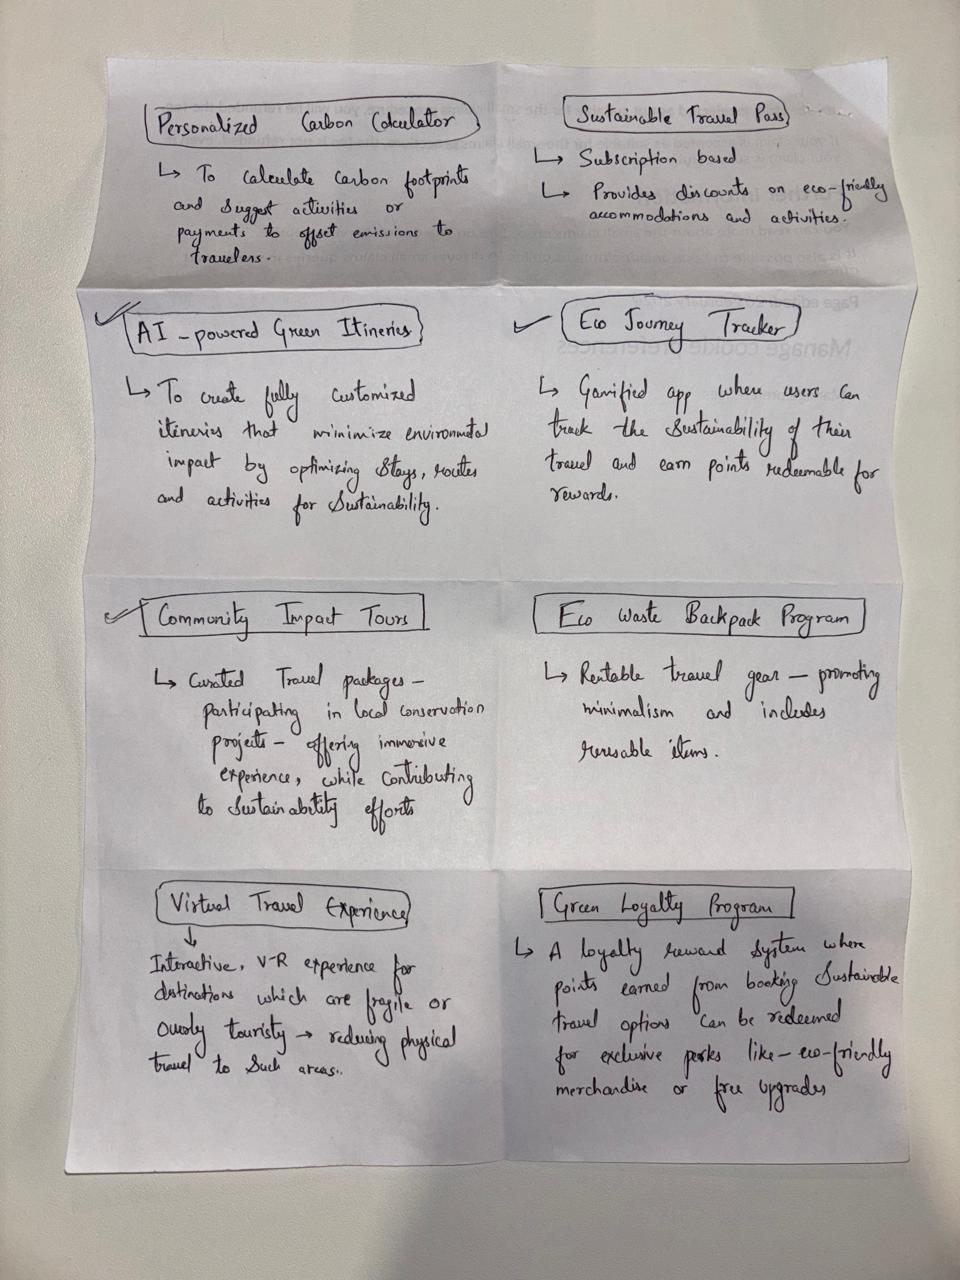 Personalized Carbon Calculator
↳ To calculate Carbon footprints
and suggest activities or
payments to offset emissions to
travelers.
Sustainable Travel Pass
↳ Subscription based
↳ Provides discounts on eco-friendly
accommodations and activities.
AI-powered Green Itineries
↳ To create fully customized
itineries that minimize environmetal
impact by optimizing Stays, routes
and activities for Sustainability.
Eco Journey Tracker
↳ Gamified app where users can
track the Sustainability of their
travel and earn points redeemable for
rewards.
Community Impact Tours
↳ Curated Travel packages –
participating in local conservation
projects – offering immersive
experience, while contributing
to Sustainability efforts
Eco Waste Backpack Program
↳ Rentable travel gear – promoting
minimalism and includes
reusable items.
Virtual Travel Experience
↓
Interactive, V-R experience for
distinations which are fragile or
overly touristy → reducing physical
travel to Such areas..
Green Loyalty Program
↳ A loyalty reward System where
points earned from booking Sustainable
travel options can be redeemed
for exclusive perks like – eco-friendly
merchandise or free upgrades
Manage cookie preferences